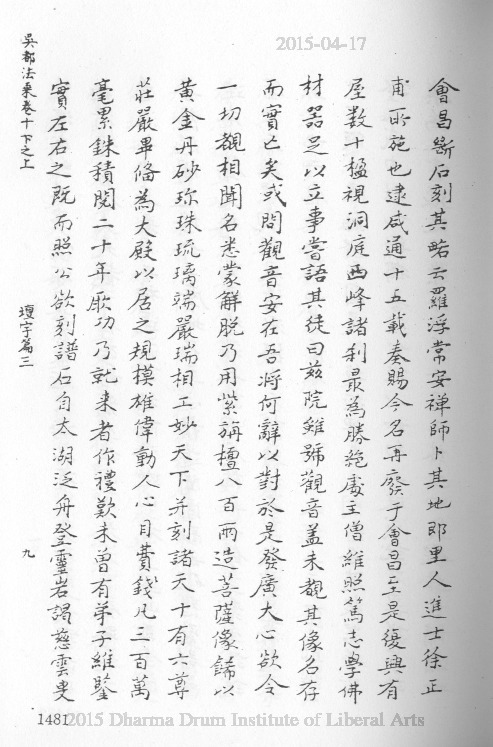 2015-04-17
會昌斷石刻其略云羅浮常安禪師卜其地郡里人進士徐正
甫所施也逮咸通十五載奏賜今名再廢于會昌至是復興有
屋数十楹視洞庭西峰諸刹最為勝絶處主僧維照篤志學佛
材器足以立事嘗語其徒曰兹院雖號觀音蓋未覩其像名存
而實亡矣或問觀音安在吾将何辭以對於是發廣大心欲令
一切覩相聞名悉蒙解脱乃用紫旃檀八百兩造菩薩像餙以
黄金丹砂珎珠琉璃端嚴瑞相工妙天下并刻諸天十有六尊
莊嚴畢備為大殿以居之規模雄偉動人心目費錢凡三百萬
毫累銖積閱二十年厥功乃就来者作禮歎未曾有弟子維鑒
實左右之既而照公欲刻譜石自太湖泛舟登靈岩謁慈雲叟
吳都法乘卷十下之上
壇宇篇三
九
1481
2015 Dharma Drum Institute of Liberal Arts